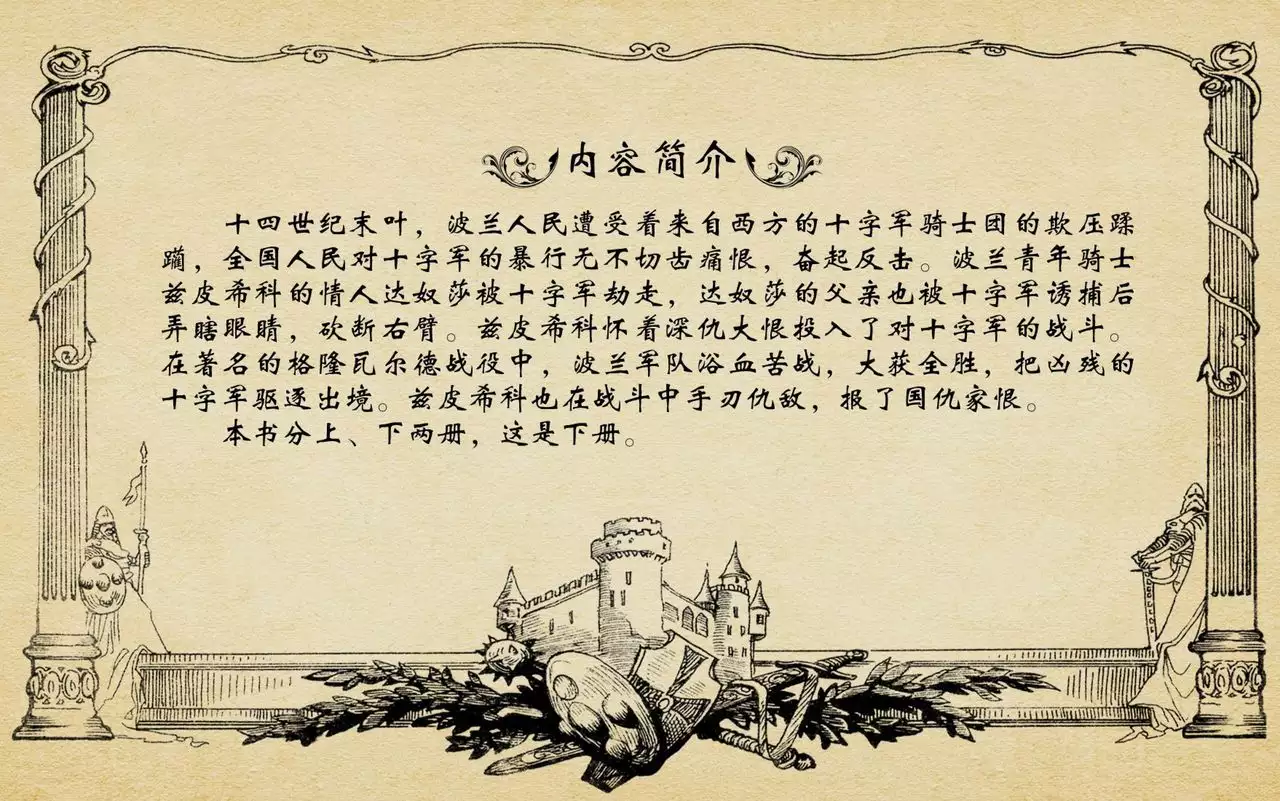 内容简介
十四世纪末叶，波兰人民遭受着来自西方的十字军骑士团的欺压蹂
躏，全国人民对十字军的暴行无不切齿痛恨，奋起反击。波兰青年骑士
兹皮希科的情人达奴莎被十字军劫走，达奴莎的父亲也被十字军诱捕后
弄瞎眼睛，砍断右臂。兹皮希科怀着深仇大恨投入了对十字军的战斗。
在著名的格隆瓦尔德战役中，波兰军队浴血苦战，大获全胜，把凶残的
十字军驱逐出境。兹皮希科也在战斗中手刃仇敌，报了国仇家恨。
本书分上、下两册，这是下册。